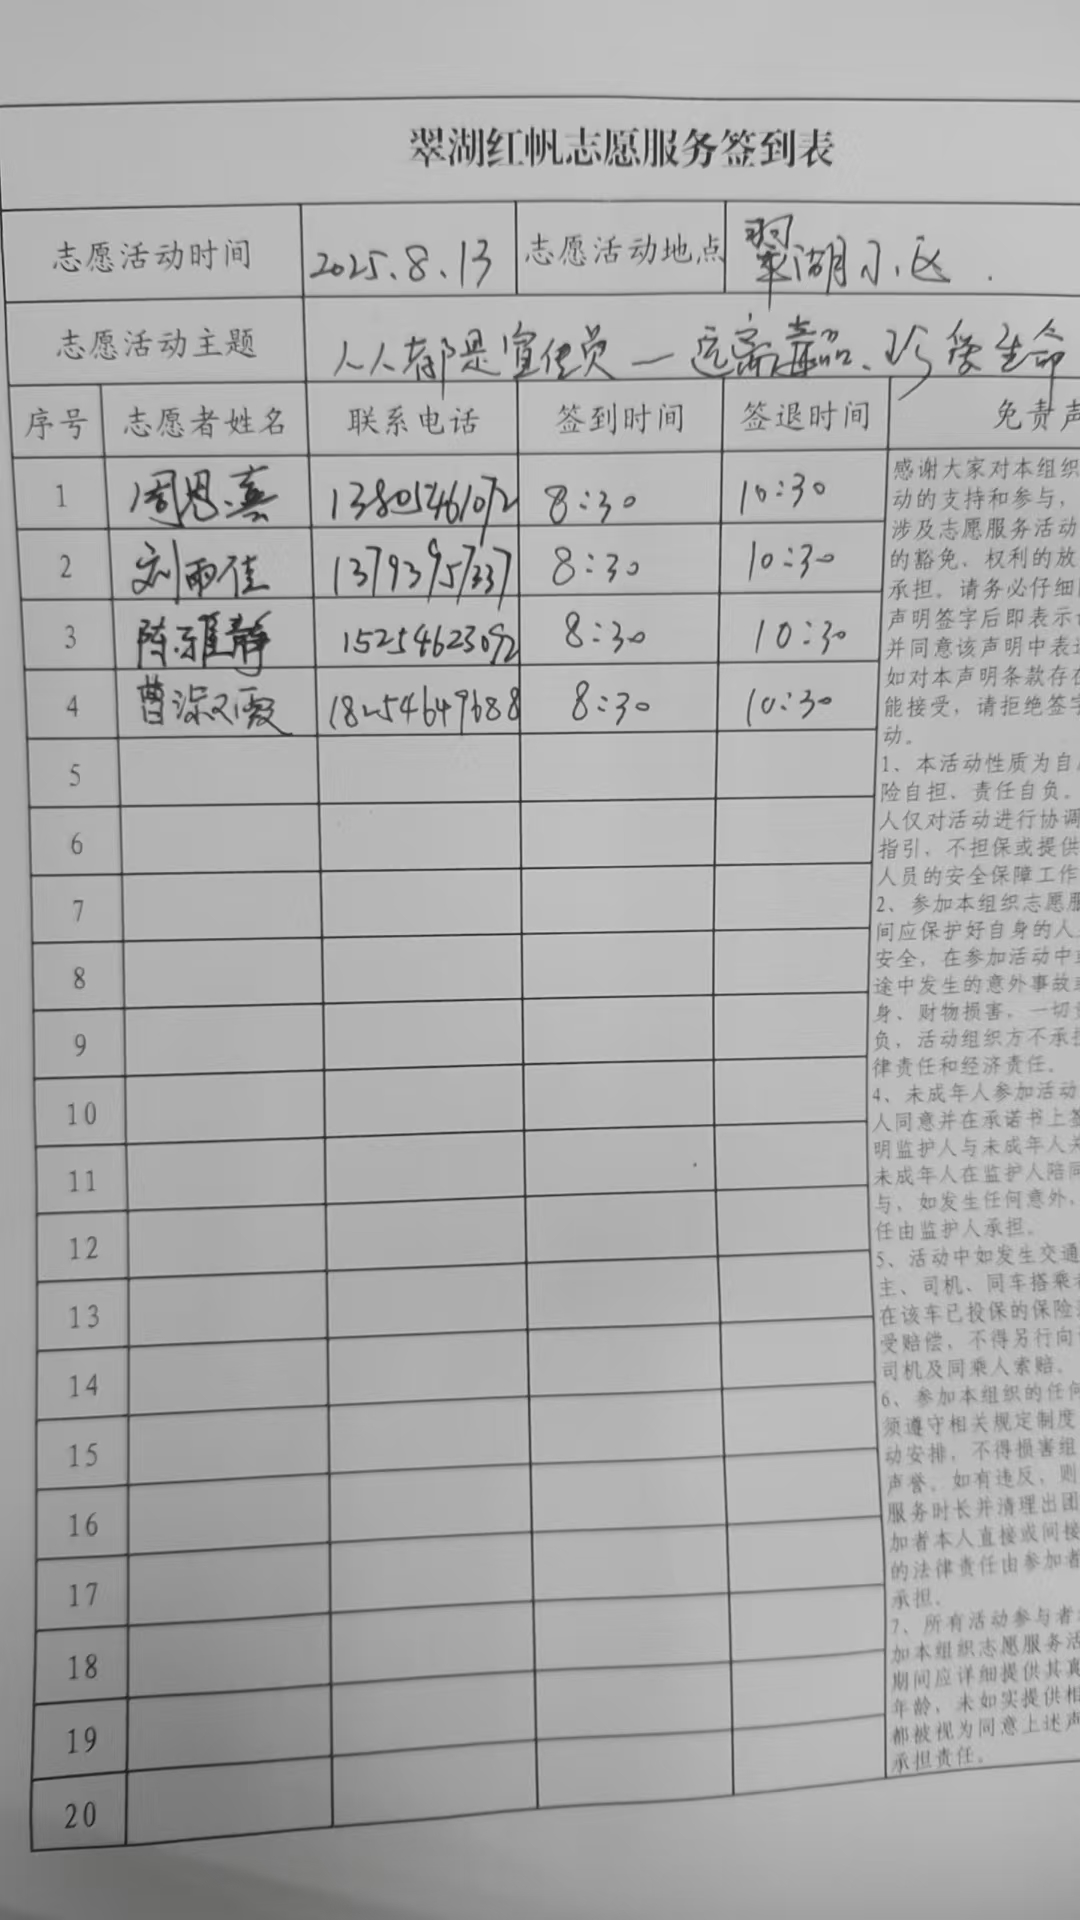 翠湖红帆志愿服务签到表
志愿活动时间 2025.8.13 志愿活动地点 翠湖小区.
志愿活动主题 人人都是宣传员—远离毒品、珍爱生命
序号 志愿者姓名 联系电话 签到时间 签退时间 免责声
1 周恩熹 13805461072 8:30 10:30
2 刘雨佳 13793957337 8:30 10:30
3 陈雅静 15254623092 8:30 10:30
4 曹 霞 18254649688 8:30 10:30
5
6
7
8
9
10
11
12
13
14
15
16
17
18
19
20
感谢大家对本组织
动的支持和参与，
涉及志愿服务活动
的豁免、权利的放
承担。请务必仔细
声明签字后即表示
并同意该声明中表
如对本声明条款存在
能接受，请拒绝签字
动。
1、本活动性质为自
险自担、责任自负。
人仅对活动进行协调
指引，不担保或提供
人员的安全保障工作
2、参加本组织志愿服
间应保护好自身的人
安全，在参加活动中
途中发生的意外事故
身、财物损害，一切
负，活动组织方不承担
律责任和经济责任。
4、未成年人参加活动
人同意并在承诺书上签
明监护人与未成年人关
未成年人在监护人陪同
与，如发生任何意外，
任由监护人承担。
5、活动中如发生交通
主、司机、同车搭乘
在该车已投保的保险
受赔偿，不得另行向
司机及同乘人索赔。
6、参加本组织的任何
须遵守相关规定制度
动安排，不得损害组
声誉。如有违反，则
服务时长并清理出团
加者本人直接或间接
的法律责任由参加者
承担。
7、所有活动参与者
加本组织志愿服务活
期间应详细提供其真
年龄，未如实提供相
都被视为同意上述声
承担责任。